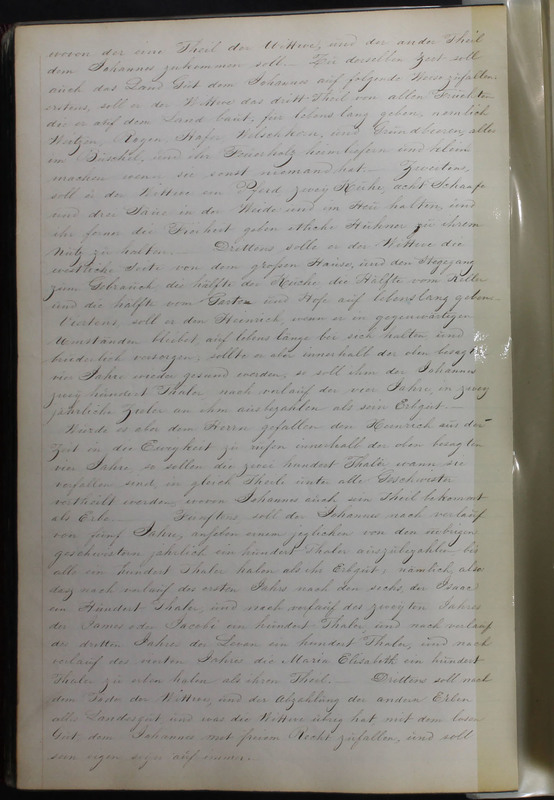 wovon der eine Theil der Wittwe, und der ander Theil
dem Johannes zukommen soll. Zu derselben Zeit soll
auch das Land Gut dem Johannes auf folgende Weise zufallen
erstens, soll er der Wittwe das dritt Theil von allen Früchten
die er auf dem Land baut, für lebens lang geben, nemlich
Weitzen, Rogen Hafer, Welschkorn, und Grundbieren, alles
im Büschel, und ihr Feuerholz heim liefern und klein
machen wenn sie sonst niemand hat. Zweitens,
soll er der Wittwe ein Pferd zwey Kühe, acht Schaafe
und drei Säue in der Weide und im Heu halten, und
ihr ferner die Freiheit geben etliche Hühner zu ihrem
Nutz zu halten. Drittens solle er der Wittwe die
westliche Seite von dem großen Hause, und den
zum Gebrauch die hälfte der Küche die Hälfte vom Keller
und die hälfte vom Garten und Hofe auf lebens lang geben.
Viertens, soll er den Heinrich, wenn er in gegenwärtigen
Umständen bleibet, auf lebens lange bei sich halten und
brüderlich versorgen; sollte er aber innerhalb der oben besagten
vier Jahre wieder gesund werden, so soll ihm der Johannes
zwey hundert Thaler, nach verlauf der vier Jahre, in zwey
jährliche Zieler an ihm ausbezahlen als sein Erbgut.—
Würde es aber dem Herrn gefallen den Heinrich aus der
Zeit in die Ewigkeit zu rufen innerhalb der oben besagten
vier Jahre, so sollen die zwei hundert Thaler wann sie
verfallen sind, in gleich Theile unter alle Geschwister
vertheilt werden, wovon Johannes auch sein Theil bekommt
als Erbe. Fünftens soll der Johannes nach verlauf
von fünf Jahre, anfangen einem jeglichen von den übrigen
geschwistern jährlich ein hundert Thaler auszubezahlen bis
alle ein hundert Thaler haben als ihr Erbgut, nämlich, also
dasz nach verlauf des ersten Jahrs nach den sechs, der Isaac
ein Hundert Thaler, und nach verlauf des zweyten Jahres
der James oder Jacobi ein hundert Thaler und nach verlauf
des dritten Jahres der Levan ein hundert Thaler, und nach
verlauf des vierten Jahres die Maria Elisabeth ein hundert
Thaler zu erben haben als ihren Theil.— Drittens soll nach
dem Tode der Wittwe, und der Abzahlung der andern Erben
alles Landesgut und was die Wittwe übrig hat mit dem losen
Gut, dem Johannes mit freiem Recht zufallen, und soll
sein eigen seyn auf immer.